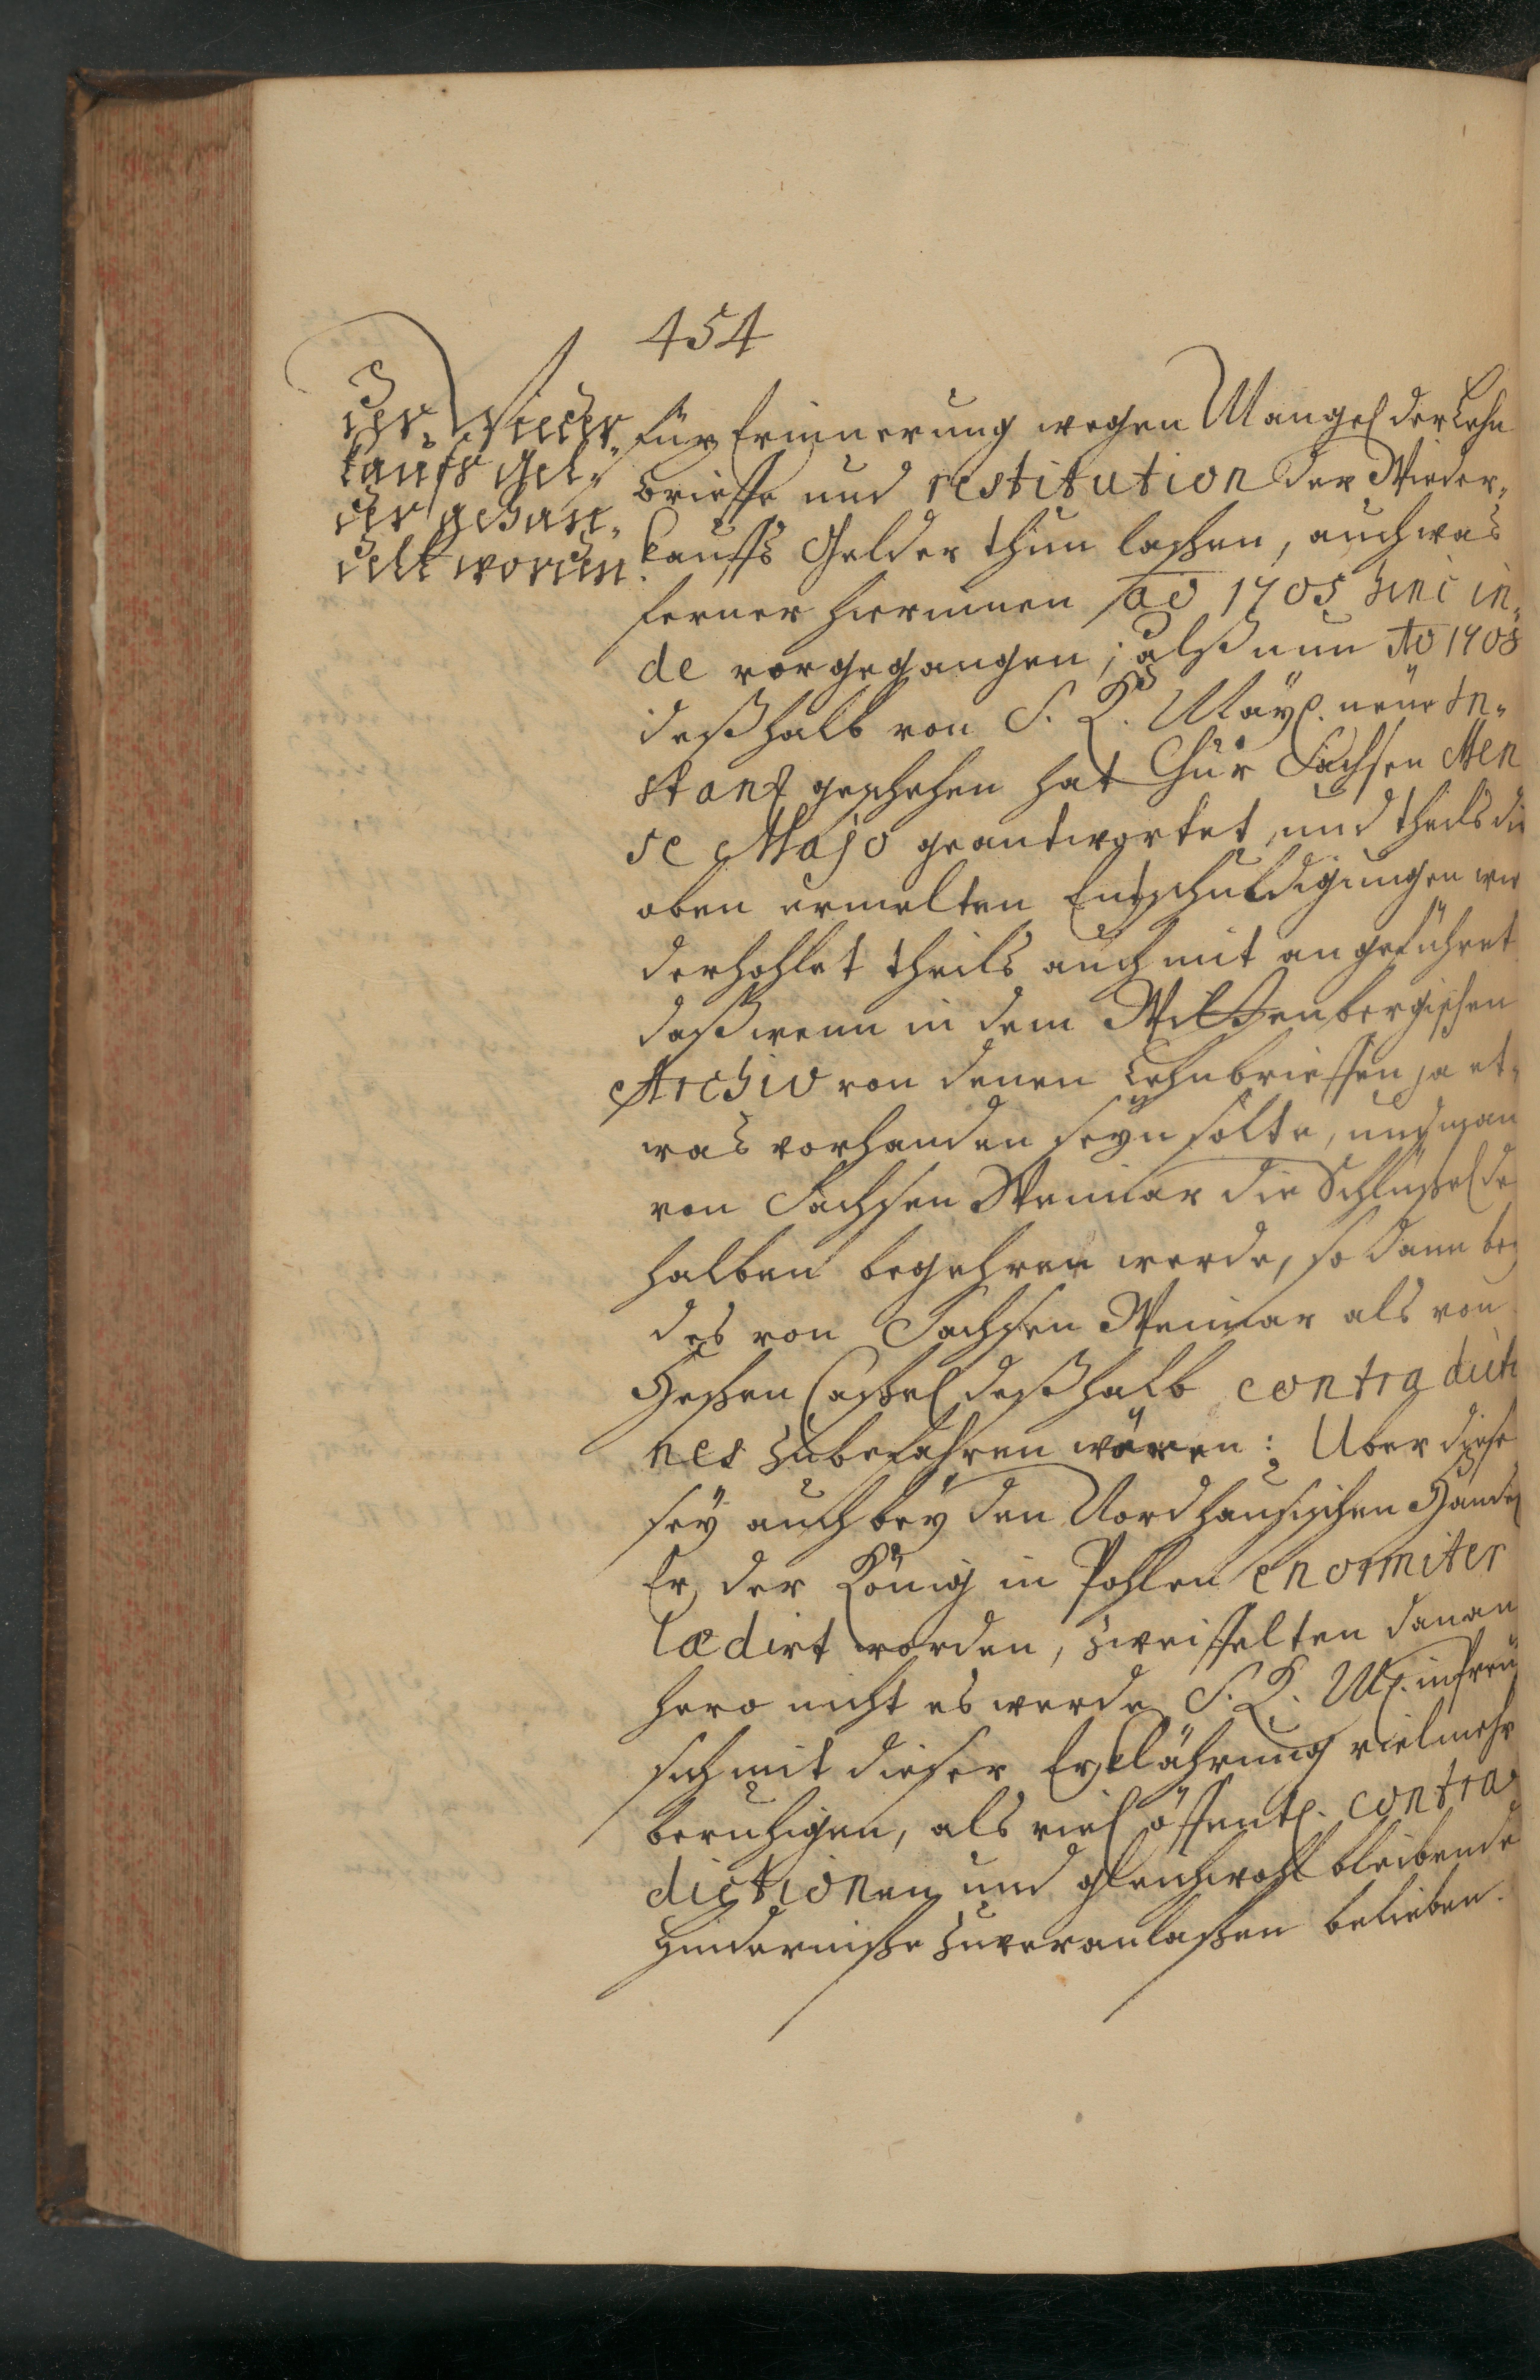 454
der Wieder„
kaufs Gel„
der gehan„
delt worden.
für Erinnerung wegen Mangel der Lehn
brieffe und restitution der Wieder„
kauffs Gelder thun laßen, auch was
ferner hierinnen ao 1705 hinc in„
de vorgegangen; alß nun Ao 1708
deßhalb von S. K. Mayt. neue In„
stanz geschehen hat Chur Sachsen Men
se Majo geantwortet, und theils die
oben ermelten Entschuldigungen wie
derhohlet theils auch mit angeführet
daß wenn in dem Wittenbergischen
Archiv von denen Lehnbrieffen ja et„
was vorhanden seyn solte, und man
von Sachsen Weimar die Schlüßel de
halben begehren werde, so dann bey
des von Sachsen Weimar als von
Heßen Caßel deßhalb contradictio
nes zubefahren wären: Uber diese
sey auch bey den Nordhausischen Händel
Er, der König in Pohlen enormiter
lædirt worden, zweiffelten danan
hero nicht es werde S. K. M. in Preu
sich mit dieser Erklährung vielmehr
beruhigen, als viel öffentl. contra„
dictionen und gleichwohl bleibende
Hinderniße zuveranlaßen belieben.